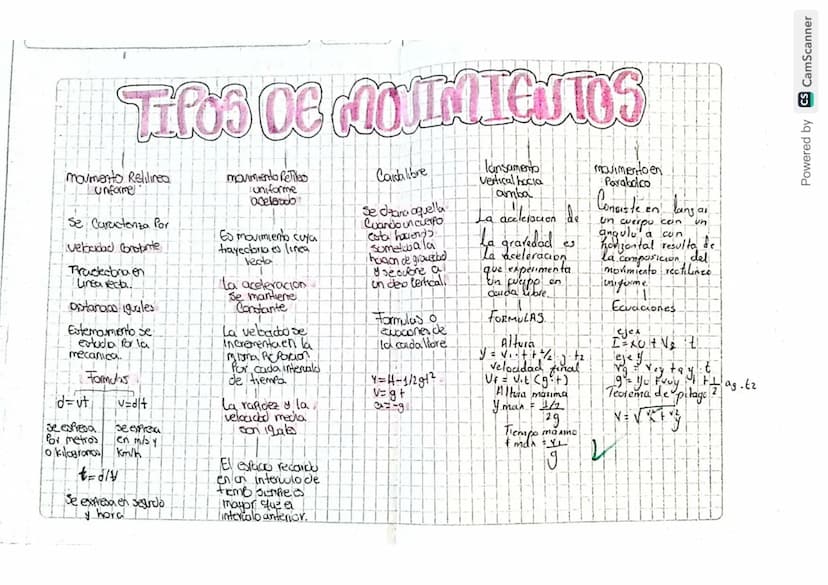 TIPOS DE MOVIMIENTOS
movimento Retilineo
uniforme
Se Caracteriza Por
velocidad constante
Trallectoria en
Linea recta.
Distancias iguales
Este movimiento se
estudia por la
mecanica.
Formulas
d=vt
v=d/t
se expresa
Por metros
o kilogramos
se expresa
en m/s y
km/h
t=d/v
Se expresa en segundo
y hora
movimiento Retilineo
uniforme
acelerado
Es movimiento cuya
trayectoria es linea
recta
La aceleracion
se mantiene
Constante
La velocidad se
incrementa en la
misma Proporcion
Por cada intervalo
de tiempo
La rapidez y la
velocidad media
son iguales
El espacio recorrido
en un intervalo de
tiempo siempre es
mayor que el
intervalo anterior.
Caida libre
Se llama aquella
Cuando un cuerpo
está
sometido a la
de gravedad
y se cubre a
un vertical
Formulas o
ecuaciones de
la caida libre
y=H-1/2gt²
v=gt
a=-g
lansamento
vertical hacia
arriba
La aceleracion de
La gravedad es
La aceleracion
que experimenta
un cuerpo en
caida libre.
FORMULAS
Altura
velocidad final
Vf = v.t (g.t)
Altura maxima
y max =
2g
Tiempo maximo
g
movimento en
Parabolico
Consiste en lanzar
un cuerpo con un
angulo a con
horizontal resulta de
la composicion del
movimiento rectilineo
uniforme
Ecuaciones
ejex
eje y
Teorema de pitago
Powered by CS CamScanner